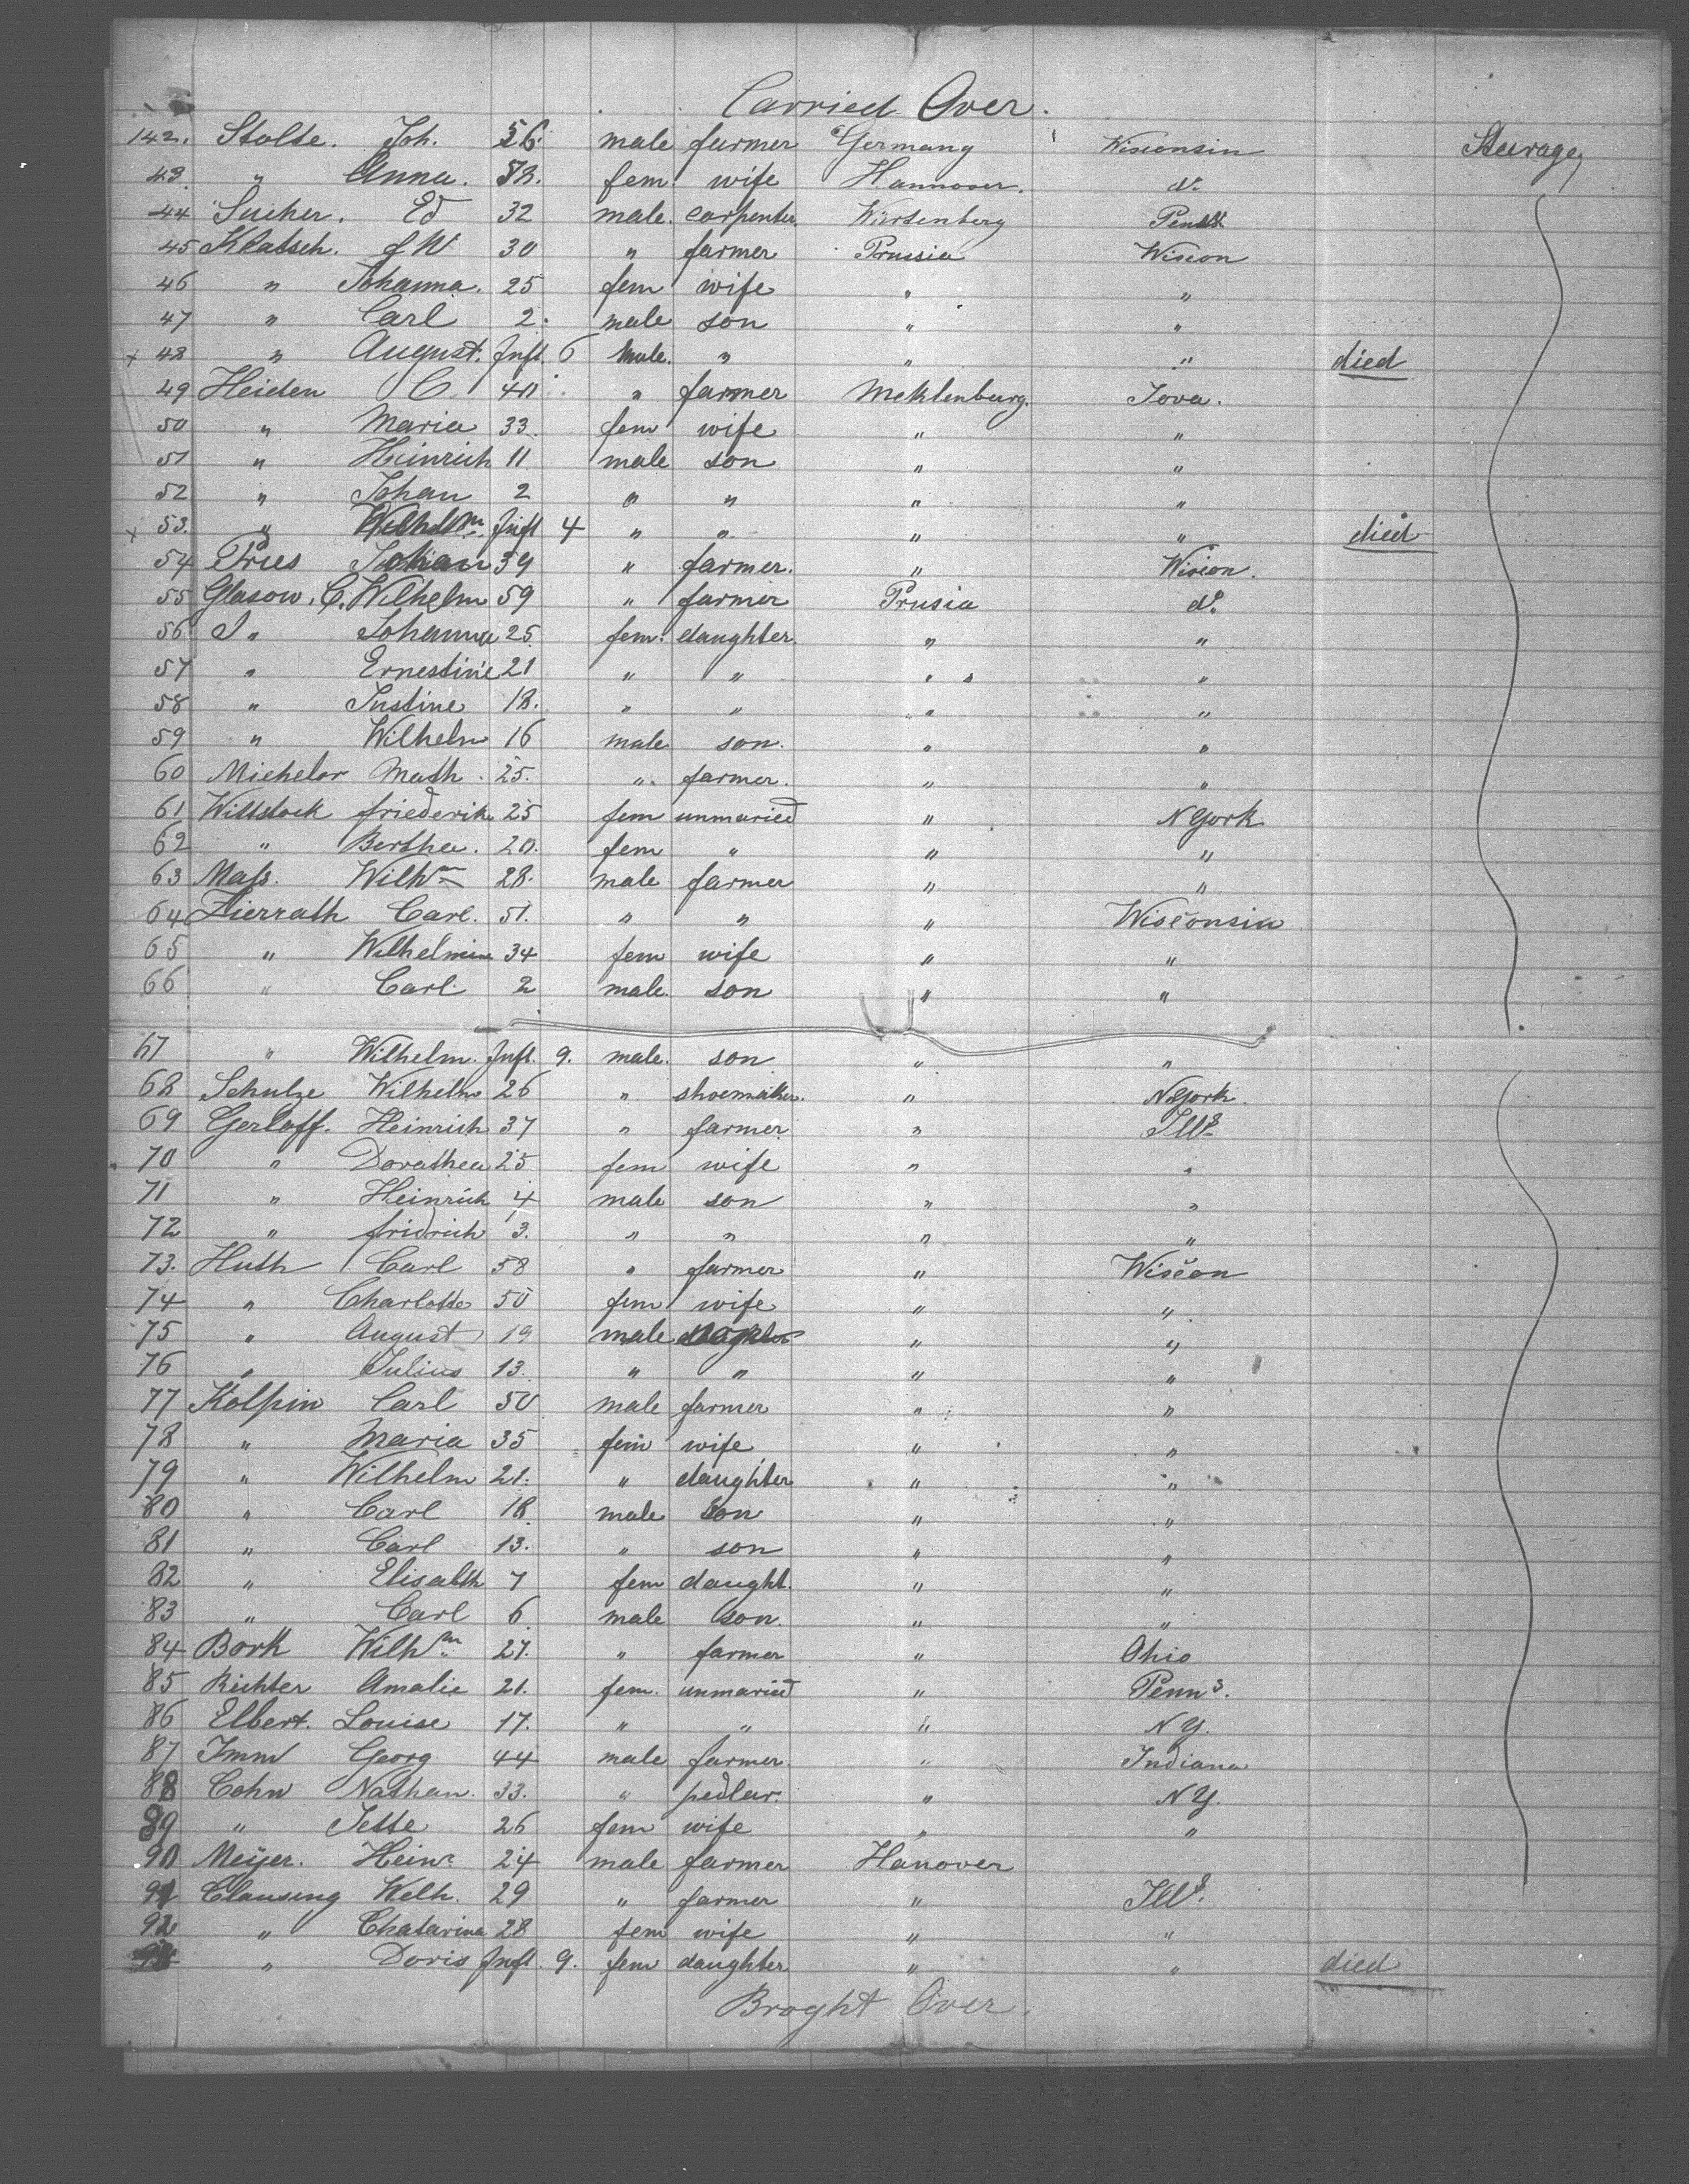 Carried Over.
142. Stolte. Joh. 56. male farmer Germany Wisconsin Steerage
43. " Anna. fem. wife Hannover. do
44 Sucher. Ed 32 male. carpenter. Würtenberg
45 Klatsch. f W 30 " farmer Prussia Wiscon
46 " Johanna. 25 fem wife " "
47 " Carl 2. male son " "
+ 48 " August. Inft. 6 male. " " " died
49 Heiden C. 40 " farmer Meklenburg. Iova.
50 " Maria 33. fem wife " "
51 " Heinrich 11 male son " "
52 " Johan 2 " " " "
+ 53. " Wilhelm. Inft 4 " " " " died
54 Pries Johan 39 " farmer. " Wiscon.
55 Glasow. C. Wilhelm 59 " farmer Prusia do
56 " Johanna 25 fem. daughter. " "
57 " Ernestine 21 " " " "
58 " Justine 18. " " " "
59 " Wilhelm 16 male son. " "
60 Michelor Math. 25. " farmer. " "
61 Wittstock friederik 25 fem unmaried " N York
62 " Berthe. 20. fem " " "
63 Maſs. Wilhm 28. male farmer " "
64 Zierrath Carl. 51. " " " Wisconsin
65 " Wilhelmine 34 fem wife " "
66 " Carl 2 male. son " "
67 " Wilhelm. Inft. 9. male. son " "
68 Schulze Wilhelm 26 " shoemaker. " N York.
69 Gerloff. Heinrich 37 " farmer " Ills
70 " Dorathea 25 fem wife " "
71 " Heinrich 4 male son " "
72 " fridrich 3. " " " "
73. Huth Carl 58 " farmer " Wiscon
74 " Charlotte 50 fem wife " "
75 " August 19 male " "
76 " Julius 13. " " " "
77 Kolpin Carl 50 male farmer " "
78 " Maria 35 fem wife " "
79 " Wilhelm 21. " daughter " "
80 " Carl 18. male son " "
81 " Carl 13. " son " "
82 " Elisabth 7 fem daught. " "
83 " Carl 6 male son. " "
84 Bork Wilhm 27. " farmer " Ohio
85 Richter Amalie 21. fem. unmaried " Penns.
86 Elbert. Louise 17. " " " N Y.
87 Imm Georg 44 male farmer. " Indiana
88 Cohn Nathan. 33. " pedlar. " N Y.
89 " Jette 26 fem wife " "
90 Meijer. Heinr 24 male farmer Hanover
91 Clausing Welh. 29 " farmer " Ills.
92 " Chatarina 28 fem wife " "
" Doris Inft. 9. fem daughter " " died
Broght Over.